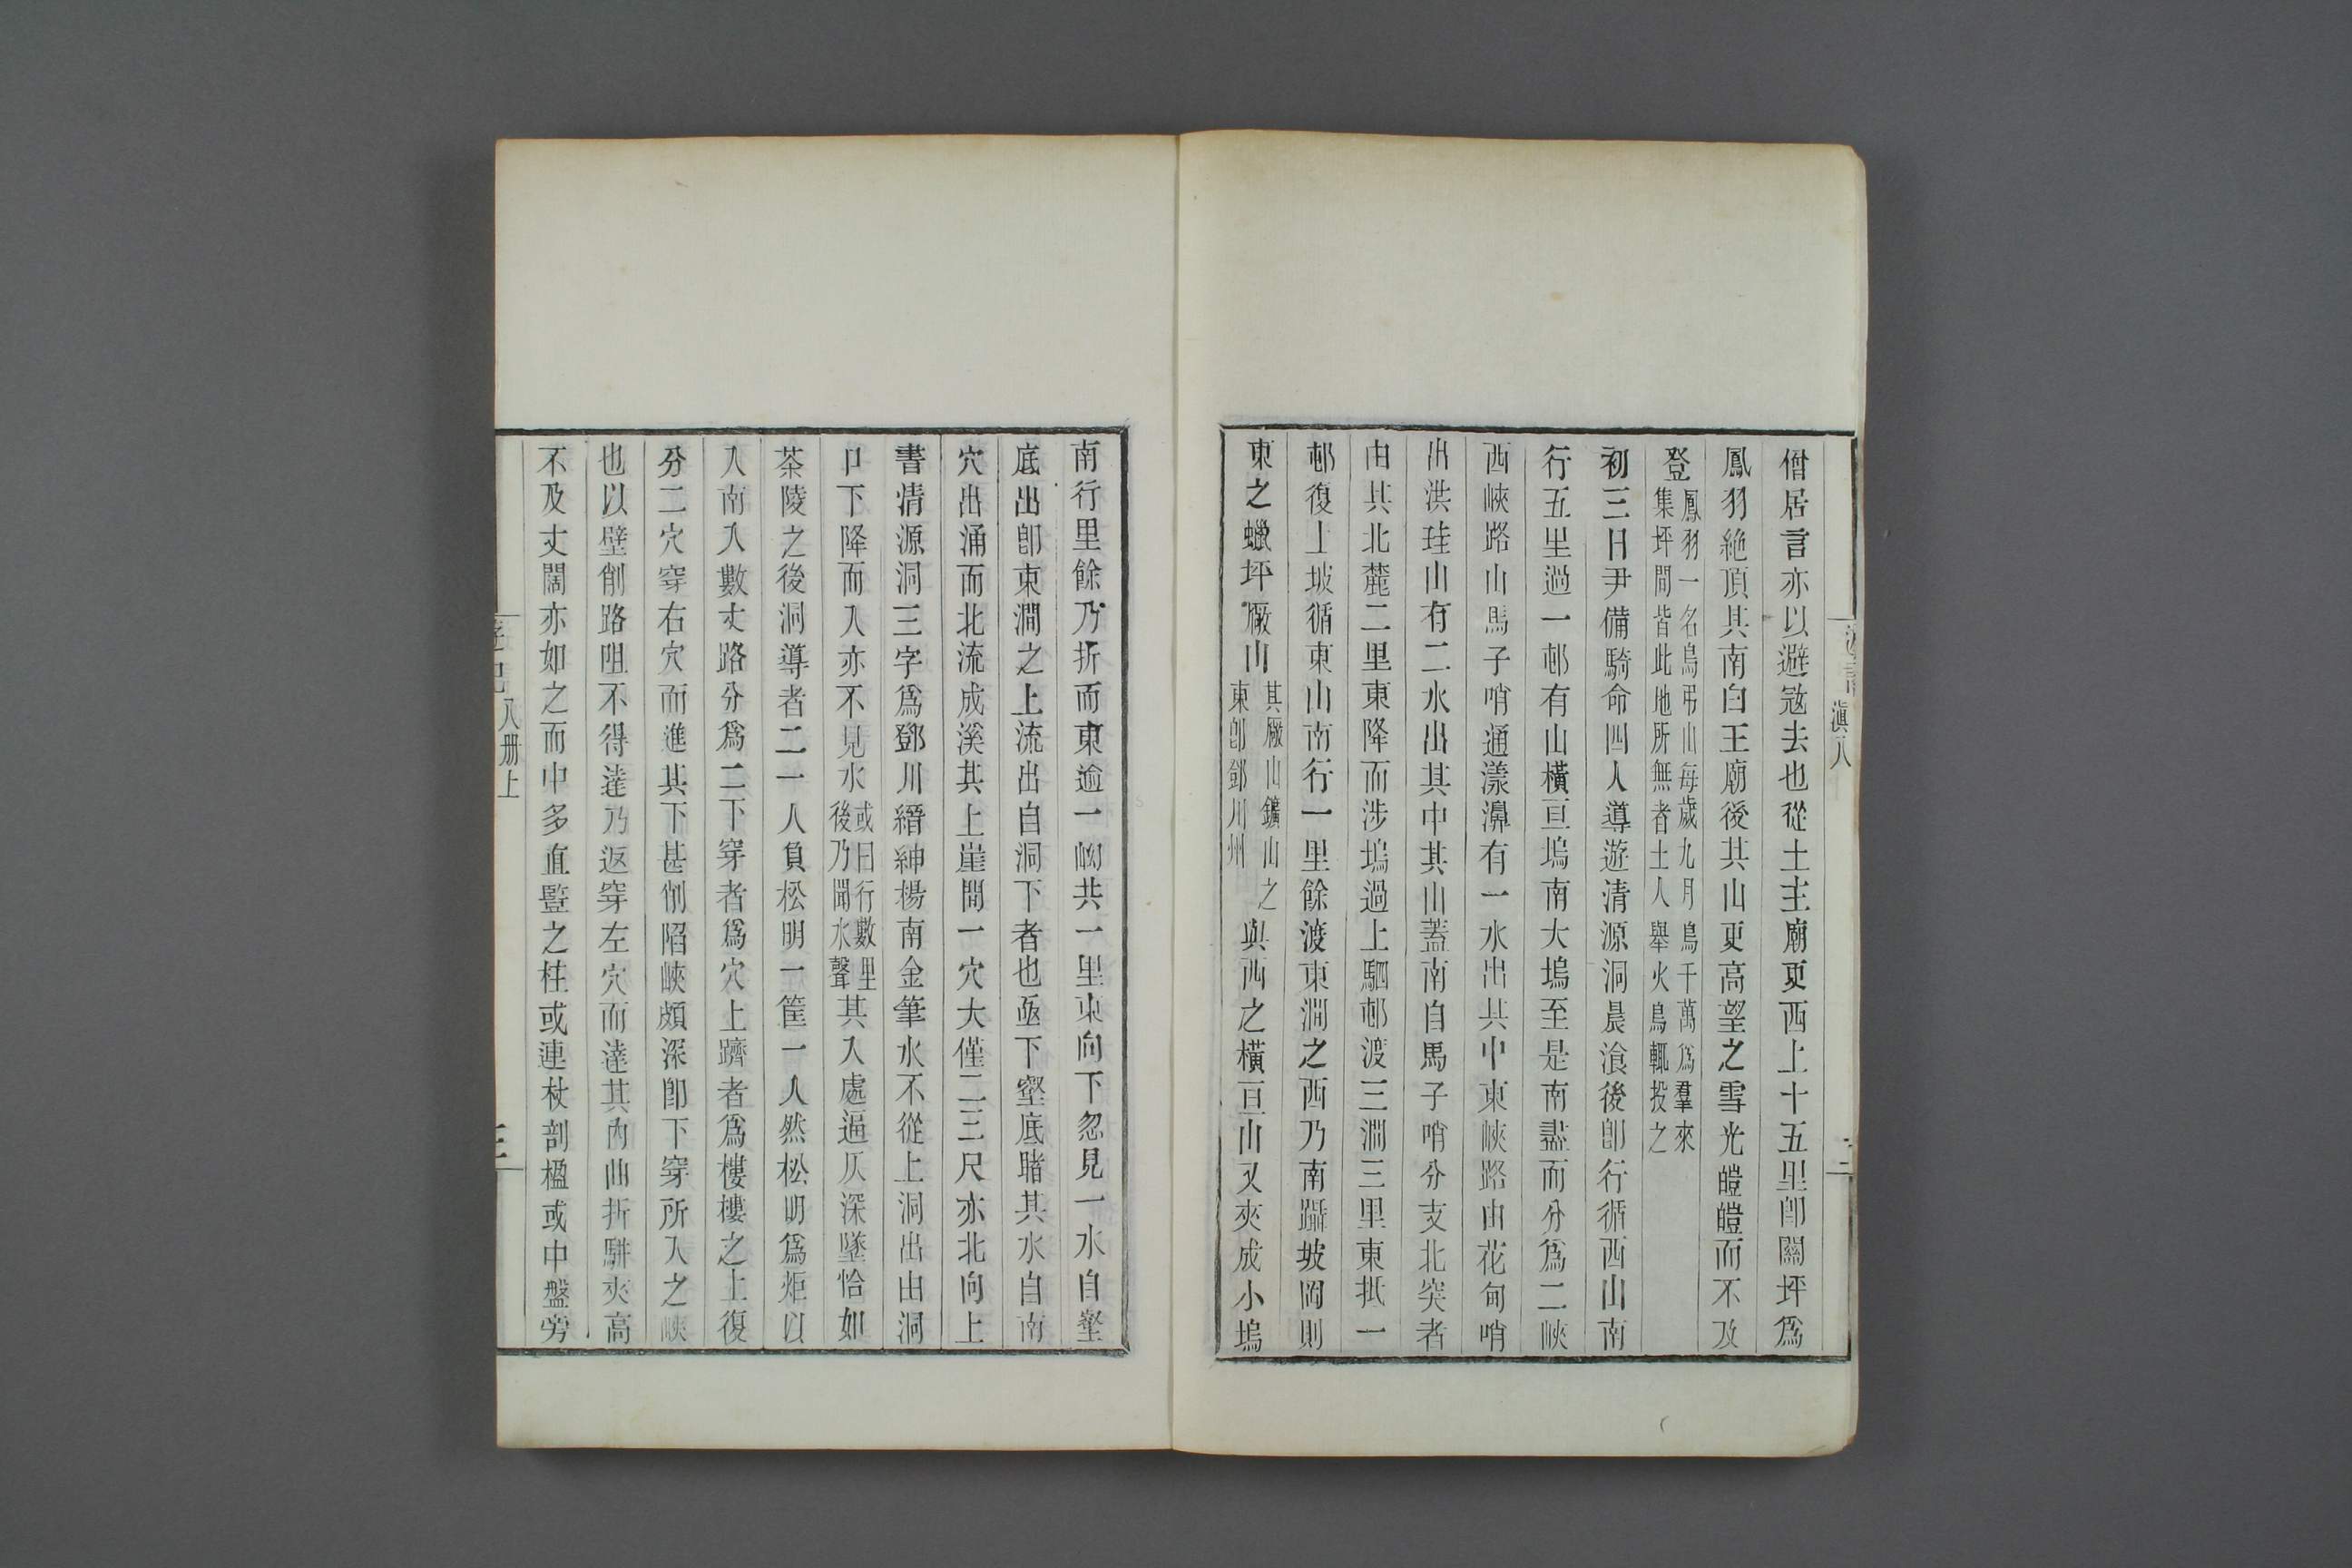 僧居言亦以避寇去也從土主廟更西上十五里卽關坪爲
鳳羽絶頂其南白王廟後其山更高望之雪光皚皚而不及
登鳳羽一名鳥弔山每歲九月鳥千萬爲羣來集坪間皆此地所無者土人舉火鳥輒投之
初三日尹備騎命四人導遊清源洞晨飡後卽行循西山南
行五里過一邨有山橫亘塢南大塢至是南盡而分爲二峽
西峽路山馬子哨通漾濞有一水出其中東峽路由花甸哨
出洪珪山有二水出其中其山蓋南自馬子哨分支北突者
由其北麓二里東降而涉塢過上駟邨渡三澗三里東抵一
邨復上坡循東山南行一里餘渡東澗之西乃南躡坡岡則
東之蠟坪厰山其厰山鑛山之東卽鄧川州與西之橫亘山又夾成小塢
滇八
二
南行里餘乃折而東逾一峽共一里東向下忽見一水自壑
底出卽東澗之上流出自洞下者也亟下壑底睹其水自南
穴出涌而北流成溪其上崖間一穴大僅二三尺亦北向上
書清源洞三字爲鄧川縉紳楊南金筆水不從上洞出由洞
口下降而入亦不見水或曰行數里後乃聞水聲其入處逼仄深墜恰如
茶陵之後洞導者二一人負松明一筐一人然松明爲炬以
入南入數丈路分爲二下穿者爲穴上躋者爲樓樓之上復
分二穴穿右穴而進其下甚削陷峽頗深卽下穿所入之峽
也以壁削路阻不得達乃返穿左穴而達其內曲折駢夾高
不及丈闊亦如之而中多直豎之柱或連杖剖楹或中盤旁
八册上